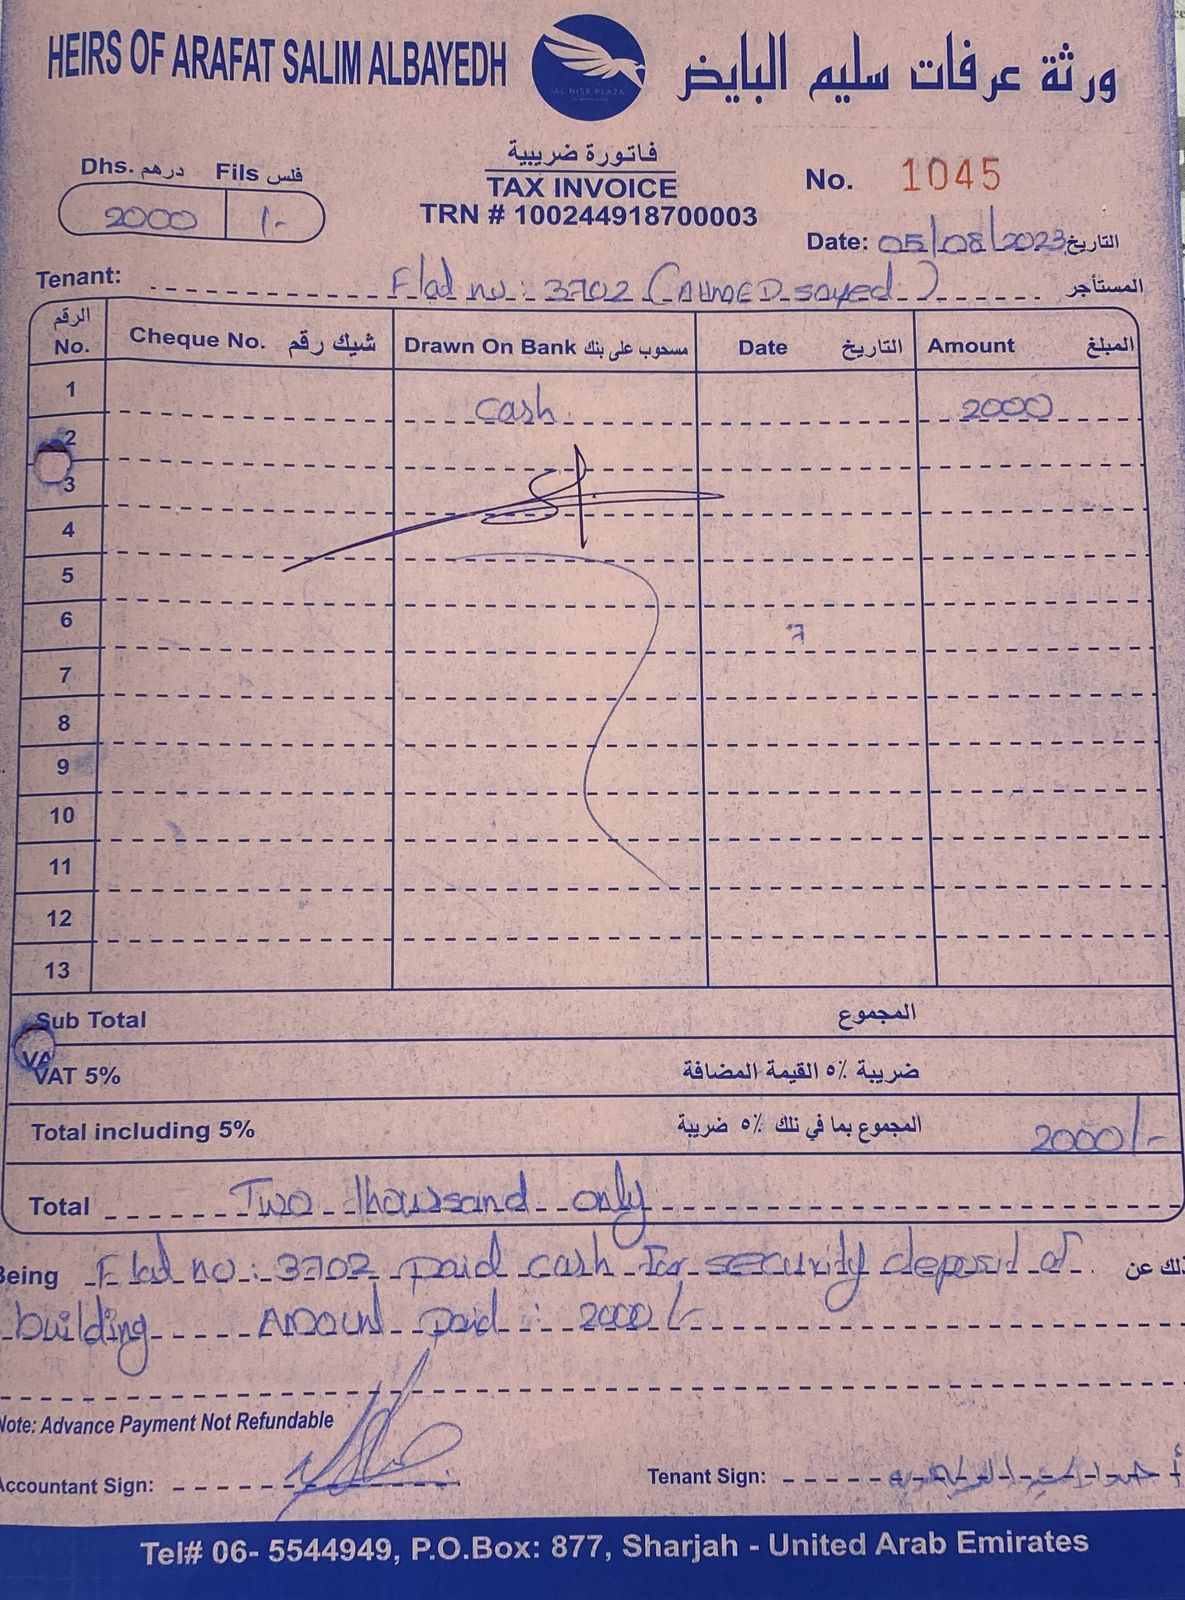 HEIRS OF ARAFAT SALIM ALBAYEDH
AL NISR PLAZA
ورثة عرفات سليم البايض
Dhs. درهم Fils فلس
2000 /-
فاتورة ضريبية
TAX INVOICE
TRN # 100244918700003
No. 1045
Date: 05/08/2023 التاريخ
Tenant: Flat no: 3702 (AHMED sayed) المستأجر
الرقم No. Cheque No. شيك رقم Drawn On Bank مسحوب على بنك Date التاريخ Amount المبلغ
1 cash 2000
2
3
4
5
6
7
8
9
10
11
12
13
Sub Total المجموع
VAT 5% ضريبة ٥٪ القيمة المضافة
Total including 5% المجموع بما في ذلك ٥٪ ضريبة 2000/-
Total Two thousand only
Being Flat no: 3702 paid cash for security deposit of ذلك عن
building Amount paid: 2000/-
Note: Advance Payment Not Refundable
Accountant Sign: Tenant Sign:
Tel# 06- 5544949, P.O.Box: 877, Sharjah - United Arab Emirates